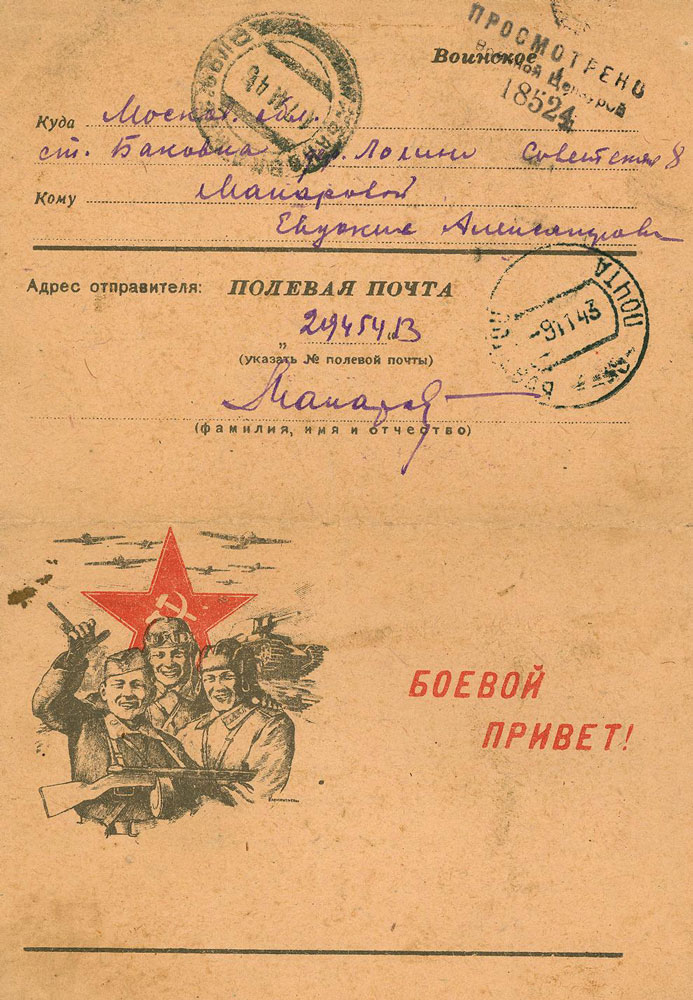 Воинское
ПРОСМОТРЕНО
Военной Цензурой
18524
Куда Москов. обл.
ст. Баковка Лопино Советская 8
Кому Макаровой
Евдокие Александровне
Адрес отправителя: ПОЛЕВАЯ ПОЧТА
„ 29454 В "
(указать № полевой почты)
Макаров
(фамилия, имя и отчество)
ПОЧТА
-9 11 43
БОЕВОЙ
ПРИВЕТ!